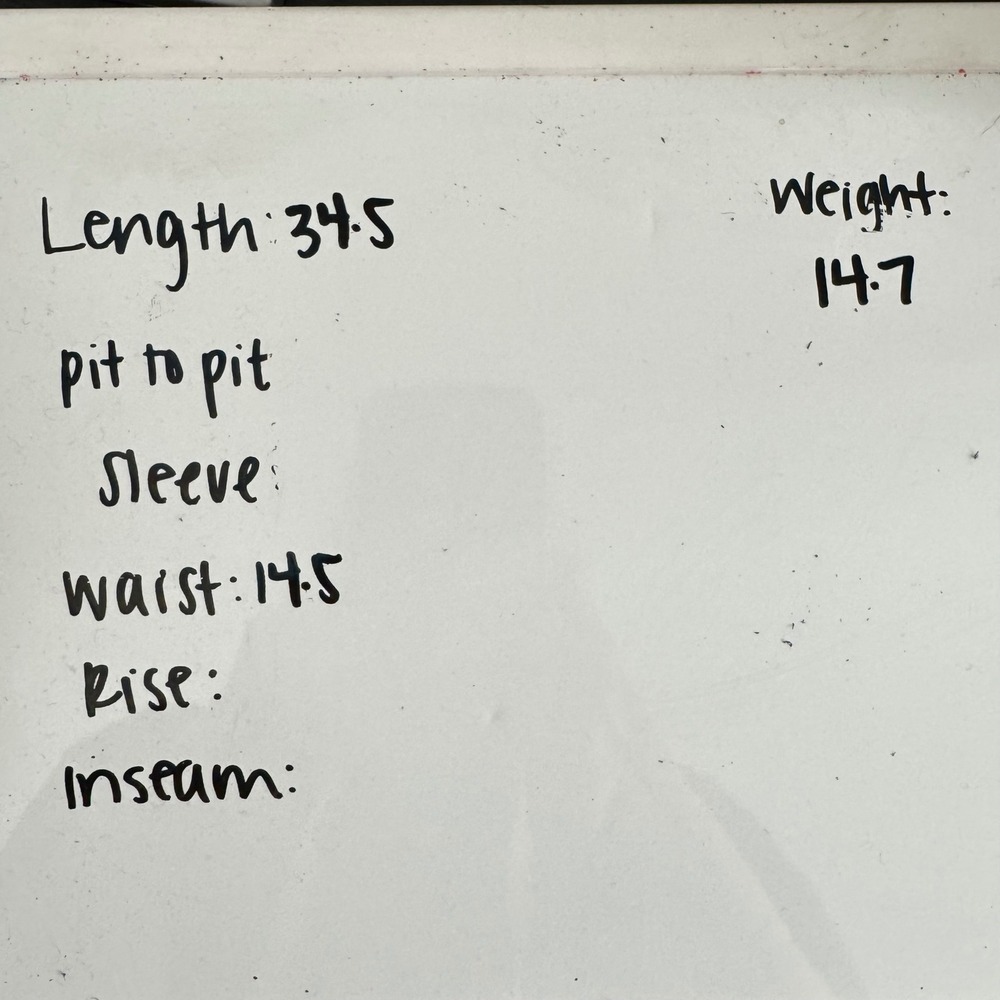 Length: 34.5
Weight:
14.7
pit to pit
Sleeve:
waist: 14.5
Rise:
Inseam: